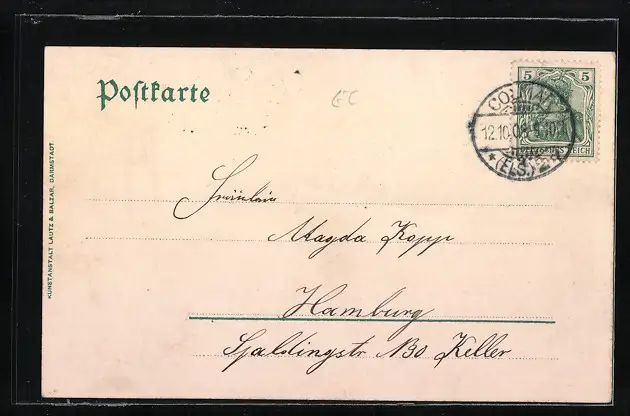 Postkarte
5 5
DEUTSCHES REICH
COLMAR
12.10.0
(ELS.)
Fräulein
Magda Kopp
Hamburg
Spaldingstr 130 Keller
KUNSTANSTALT LAUTZ & BALZAR, DARMSTADT